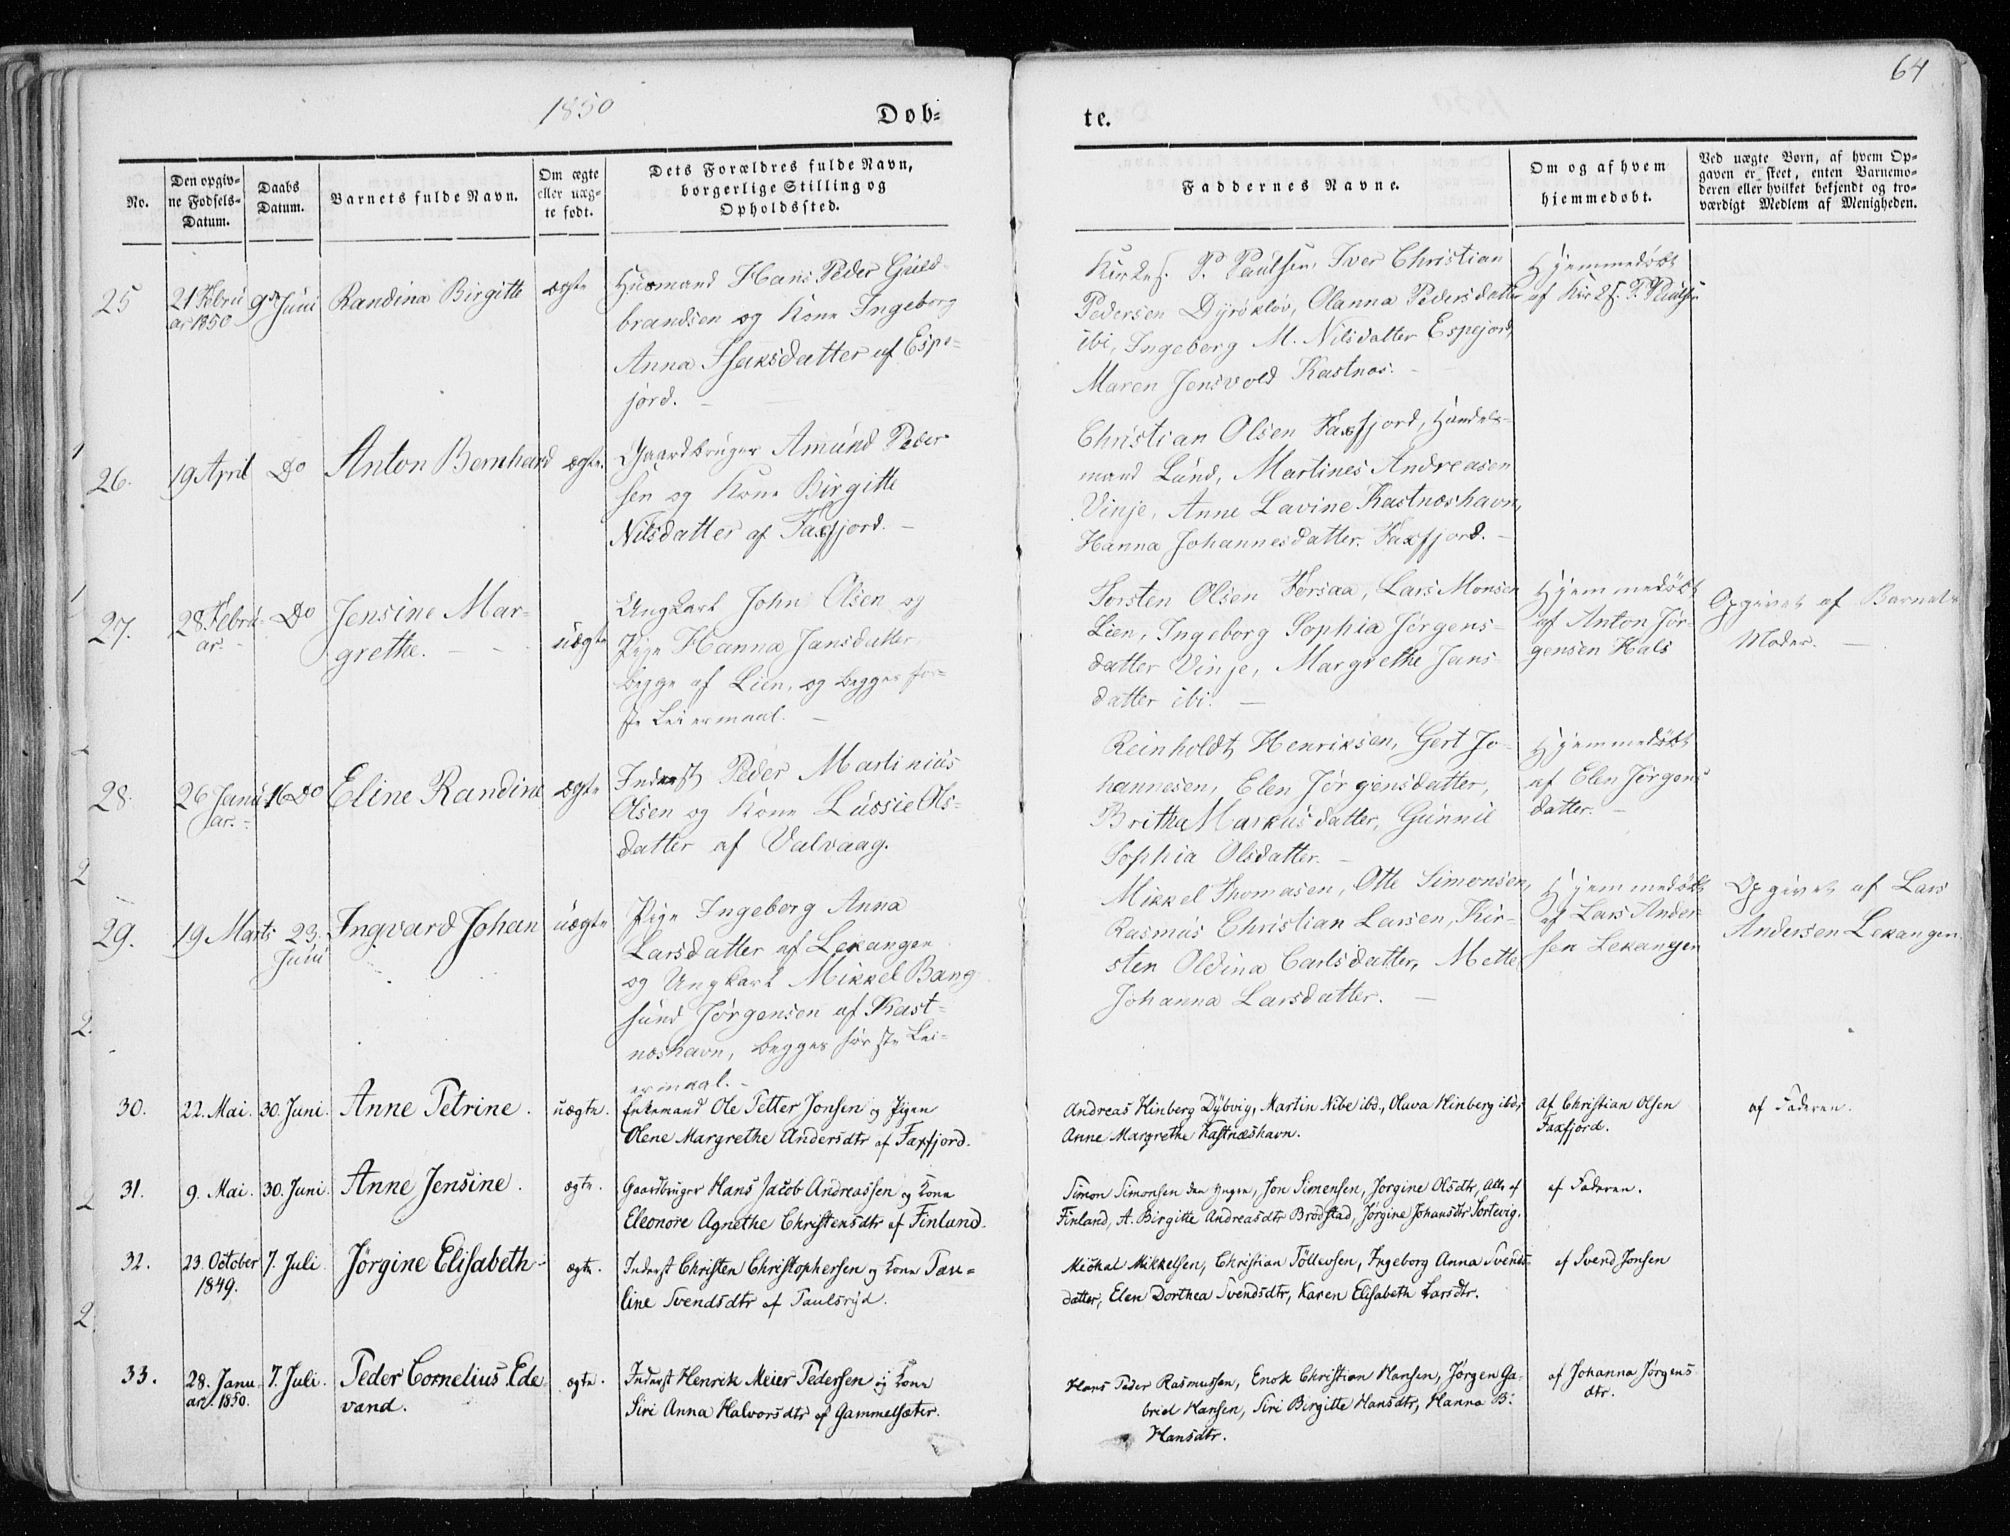 64
1850
Døb-
te.
No.
Den opgiv-
ne Fødsels-
Datum.
Daabs
Datum.
Barnets fulde Navn.
Om ægte
eller uæg-
te født.
Dets Forældres fulde Navn,
borgerlige Stilling og
Opholdssted.
Faddernes Navne.
Om og af hvem
hjemmedøbt.
Ved uægte Børn, af hvem Op-
gaven er skeet, enten Barnemo-
deren eller hvilket bekjendt og tro-
værdigt Medlem af Menigheden.
25
21 Febru
ar 1850
9de Juni
Randina Birgitte
ægte
Huusmand Hans Peder Guld-
brandsen og Kone Ingeborg
Anna Isaksdatter af Espe-
jord.
Kirkes. P. Paulsen, Iver Christian
Pedersen Dyrøkløv, Olanna Pedersdatter
ibi, Ingeborg M. Nilsdatter Espejord,
Maren Jensvold Kastnæs.
Hjemmedøbt
af Kirkes. P. Paulsen
26.
19 April
Do
Anton Bernhard
ægte.
Gaardbruger Amund Peder-
sen og Kone Birgitte
Nilsdatter af Faxfjord.
Christian Olsen Faxfjord, Handels-
mand Lund, Martines Andreasen
Vinje, Anne Lavine Kastnæshavn,
Hanna Johannesdatter Faxfjord.
27.
28 Febru-
ar.
Do
Jensine Mar-
grethe.
uægte
Ungkarl John Olsen og
Pige Hanna Jansdatter
begge af Lien, og begges før-
ste Leiermaal.
Torsten Olsen Forsaa, Lars Monsen
Lien, Ingeborg Sophia Jørgens-
datter Vinje, Margrethe Jans-
datter ibi.
Hjemmedøbt
af Anton Jør-
gensen Hals
Opgivet af Barnets
Moder.
28.
26 Janu-
ar.
16 Do
Eline Randine
ægte
Inderst Peder Martinius
Olsen og Kone Lussie Ols-
datter af Valvaag.
Reinholdt Henriksen, Gert Jo-
hannesen, Elen Jørgensdatter,
Britha Markusdatter, Gunnil
Sophia Olsdatter.
Hjemmedøbt
af Elen Jørgens
datter.
29.
19 Marts
23.
Juni
Ingvard Johan
uægte
Pige Ingeborg Anna
Larsdatter af Lekangen
og Ungkarl Mikkel Bang
sund Jørgensen af Kast-
næshavn, begges første Lei-
ermaal.
Mikkel Thomasen, Otte Simonsen,
Rasmus Christian Larsen, Kir-
sten Oldina Carlsdatter, Mette
Johanna Larsdatter.
Hjemmedøbt
af Lars Ander-
sen Lekangen
Opgivet af Lars
Andersen Lekangen.
30.
22. Mai.
30. Juni.
Anne Petrine.
uægte.
Enkemand Ole Petter Jonsen og Pigen
Olene Margrethe Andersdtr af Faxfjord.
Andreas Hinberg Dybvig, Martin Nibe ibd., Olava Hinberg ibd,
Anne Margrethe Kastnæshavn.
af Christian Olsen
Faxfjord.
af Faderen.
31.
9. Mai.
30. Juni.
Anne Jensine.
ægte.
Gaardbruger Hans Jacob Andreassen og Kone
Eleonore Agnethe Christensdtr af Finland.
Simon Simonsen den yngre, Jon Simensen, Jørgine Olsdtr, Alle af
Finland, A. Birgitte Andreasdtr Brødstad, Jørgine Johansdtr Sortevig.
af Faderen.
32.
23. October
1849.
7. Juli.
Jørgine Elisabeth
ægte.
Inderst Christen Christophersen og Kone Pau-
line Svendsdtr af Paulsryd.
Michal Mikkelsen, Christian Tollevsen, Ingeborg Anna Svends-
datter, Elen Dorthea Svendsdtr, Karen Elisabeth Larsdtr.
af Svend Jonsen
33.
28. Janu-
ar. 1850.
7. Juli.
Peder Cornelius Ede-
vand.
ægte.
Inderst Henrik Meier Pedersen og Kone
Siri Anna Halvorsdtr af Gammelsæter.
Hans Peder Rasmussen, Enok Christian Hansen, Jørgen Ga-
briel Hansen, Siri Birgitte Hansdtr, Hanna B:
Hansdtr.
af Johanna Jørgens
dtr.